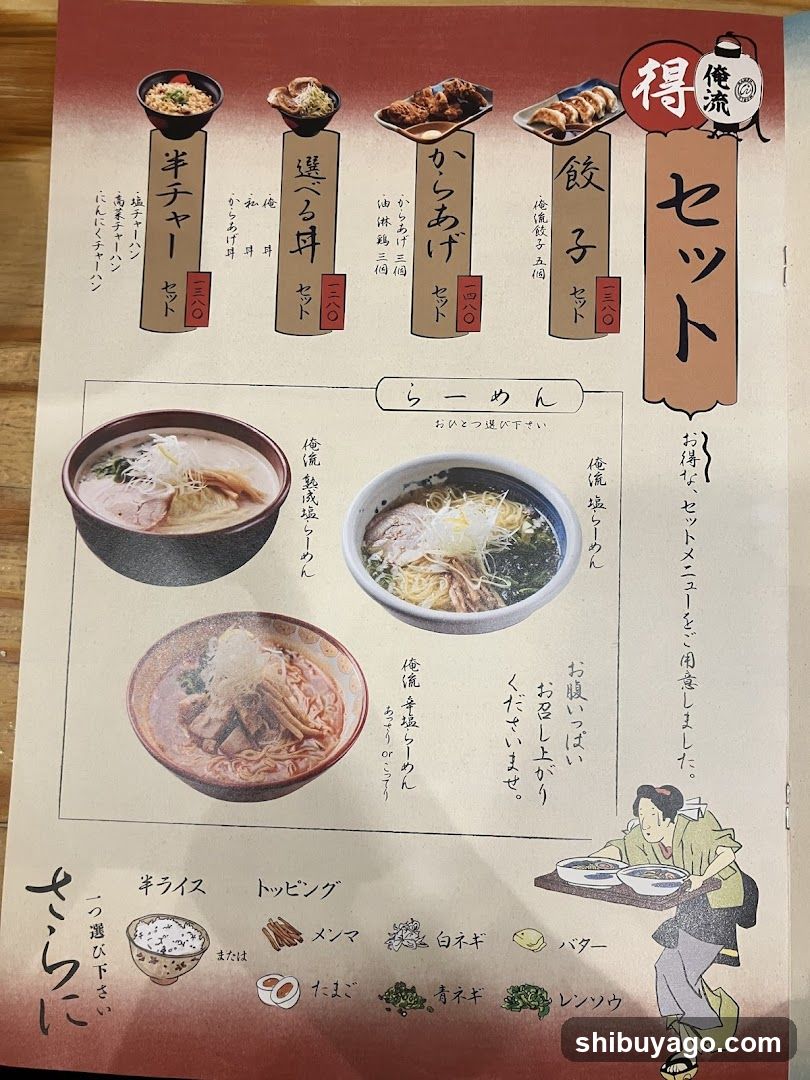 得
俺流
セット
お得な、セットメニューをご用意しました。
餃子
セット
一三八〇
・俺流餃子 五個
からあげ
セット
一四八〇
・からあげ 三個
・油淋鶏 三個
選べる丼
セット
一二八〇
・俺丼
・私丼
・からあげ丼
半チャー
セット
一三八〇
・塩チャーハン
・高菜チャーハン
・にんにくチャーハン
らーめん
おひとつ選び下さい
俺流 塩らーめん
俺流 熟成塩らーめん
俺流 辛塩らーめん
あっさり or こってり
お腹いっぱい
お召し上がり
くださいませ。
さらに
一つ選び下さい
半ライス
または
トッピング
メンマ
白ネギ
バター
たまご
青ネギ
レンソウ
shibuyago.com